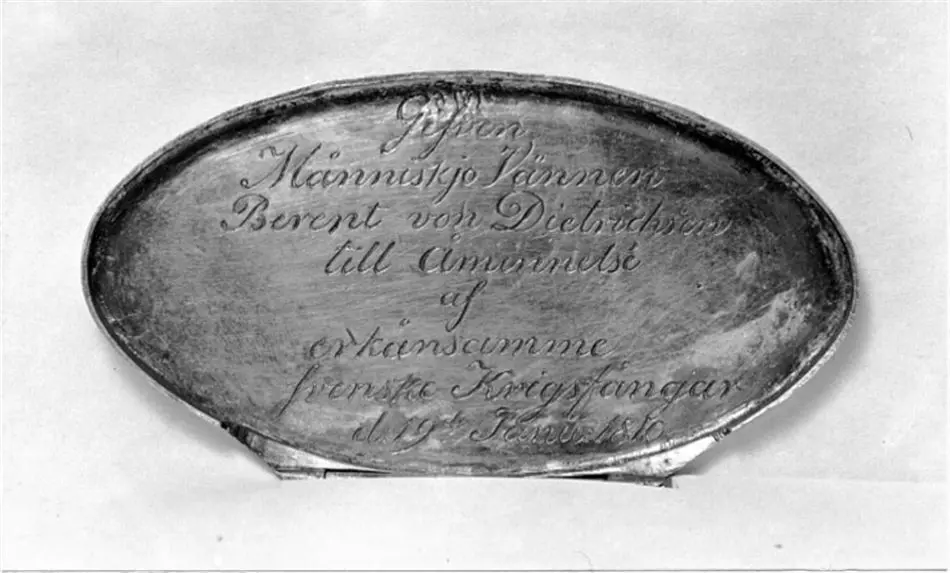 Gifven
Människjo Vännen
Berent von Dietrichsen
till Åminnelse
af
erkänsamme
svenske Krigsfångar
d. 19de Janu. 1810